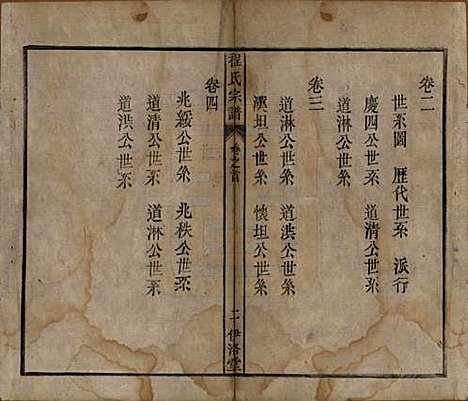 卷二
世系圖　歷代世系　派行
慶四公世系　道清公世系
道淋公世系
卷三
道淋公世系　道洪公世系
澤坦公世系　懷坦公世系
程氏宗譜
卷之首
二
伊洛堂
卷四
兆綏公世系　兆秩公世系
道清公世系　道淋公世系
道洪公世系